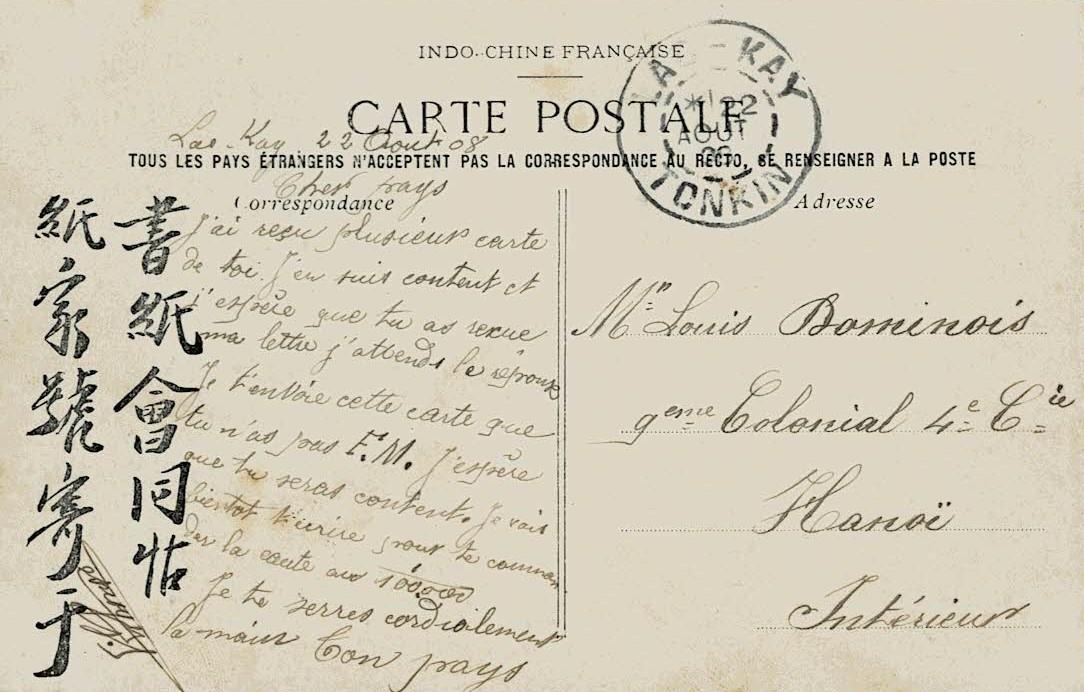 INDO-CHINE FRANÇAISE
CARTE POSTALE
TOUS LES PAYS ÉTRANGERS N'ACCEPTENT PAS LA CORRESPONDANCE AU RECTO, SE RENSEIGNER A LA POSTE
LAO-KAY
22
AOUT
TONKIN
Correspondance
Adresse
Lao-Kay 22 Aout 08
Cher pays
J'ai reçu plusieur carte
de toi. J'en suis content et
j'espère que tu as recue
ma lettre j'attends le réponse
Je t'envoie cette carte que
tu n'as pas F.M. J'espère
que tu seras content. Je vais
bientot t'ecrire pour te comman
der la carte au 100.000
Je te serres cordialement
la main Ton pays
書紙會同帖
紙家號寄于
Mr Louis Bominois
9eme Colonial 4e Cie
Hanoï
Intérieur